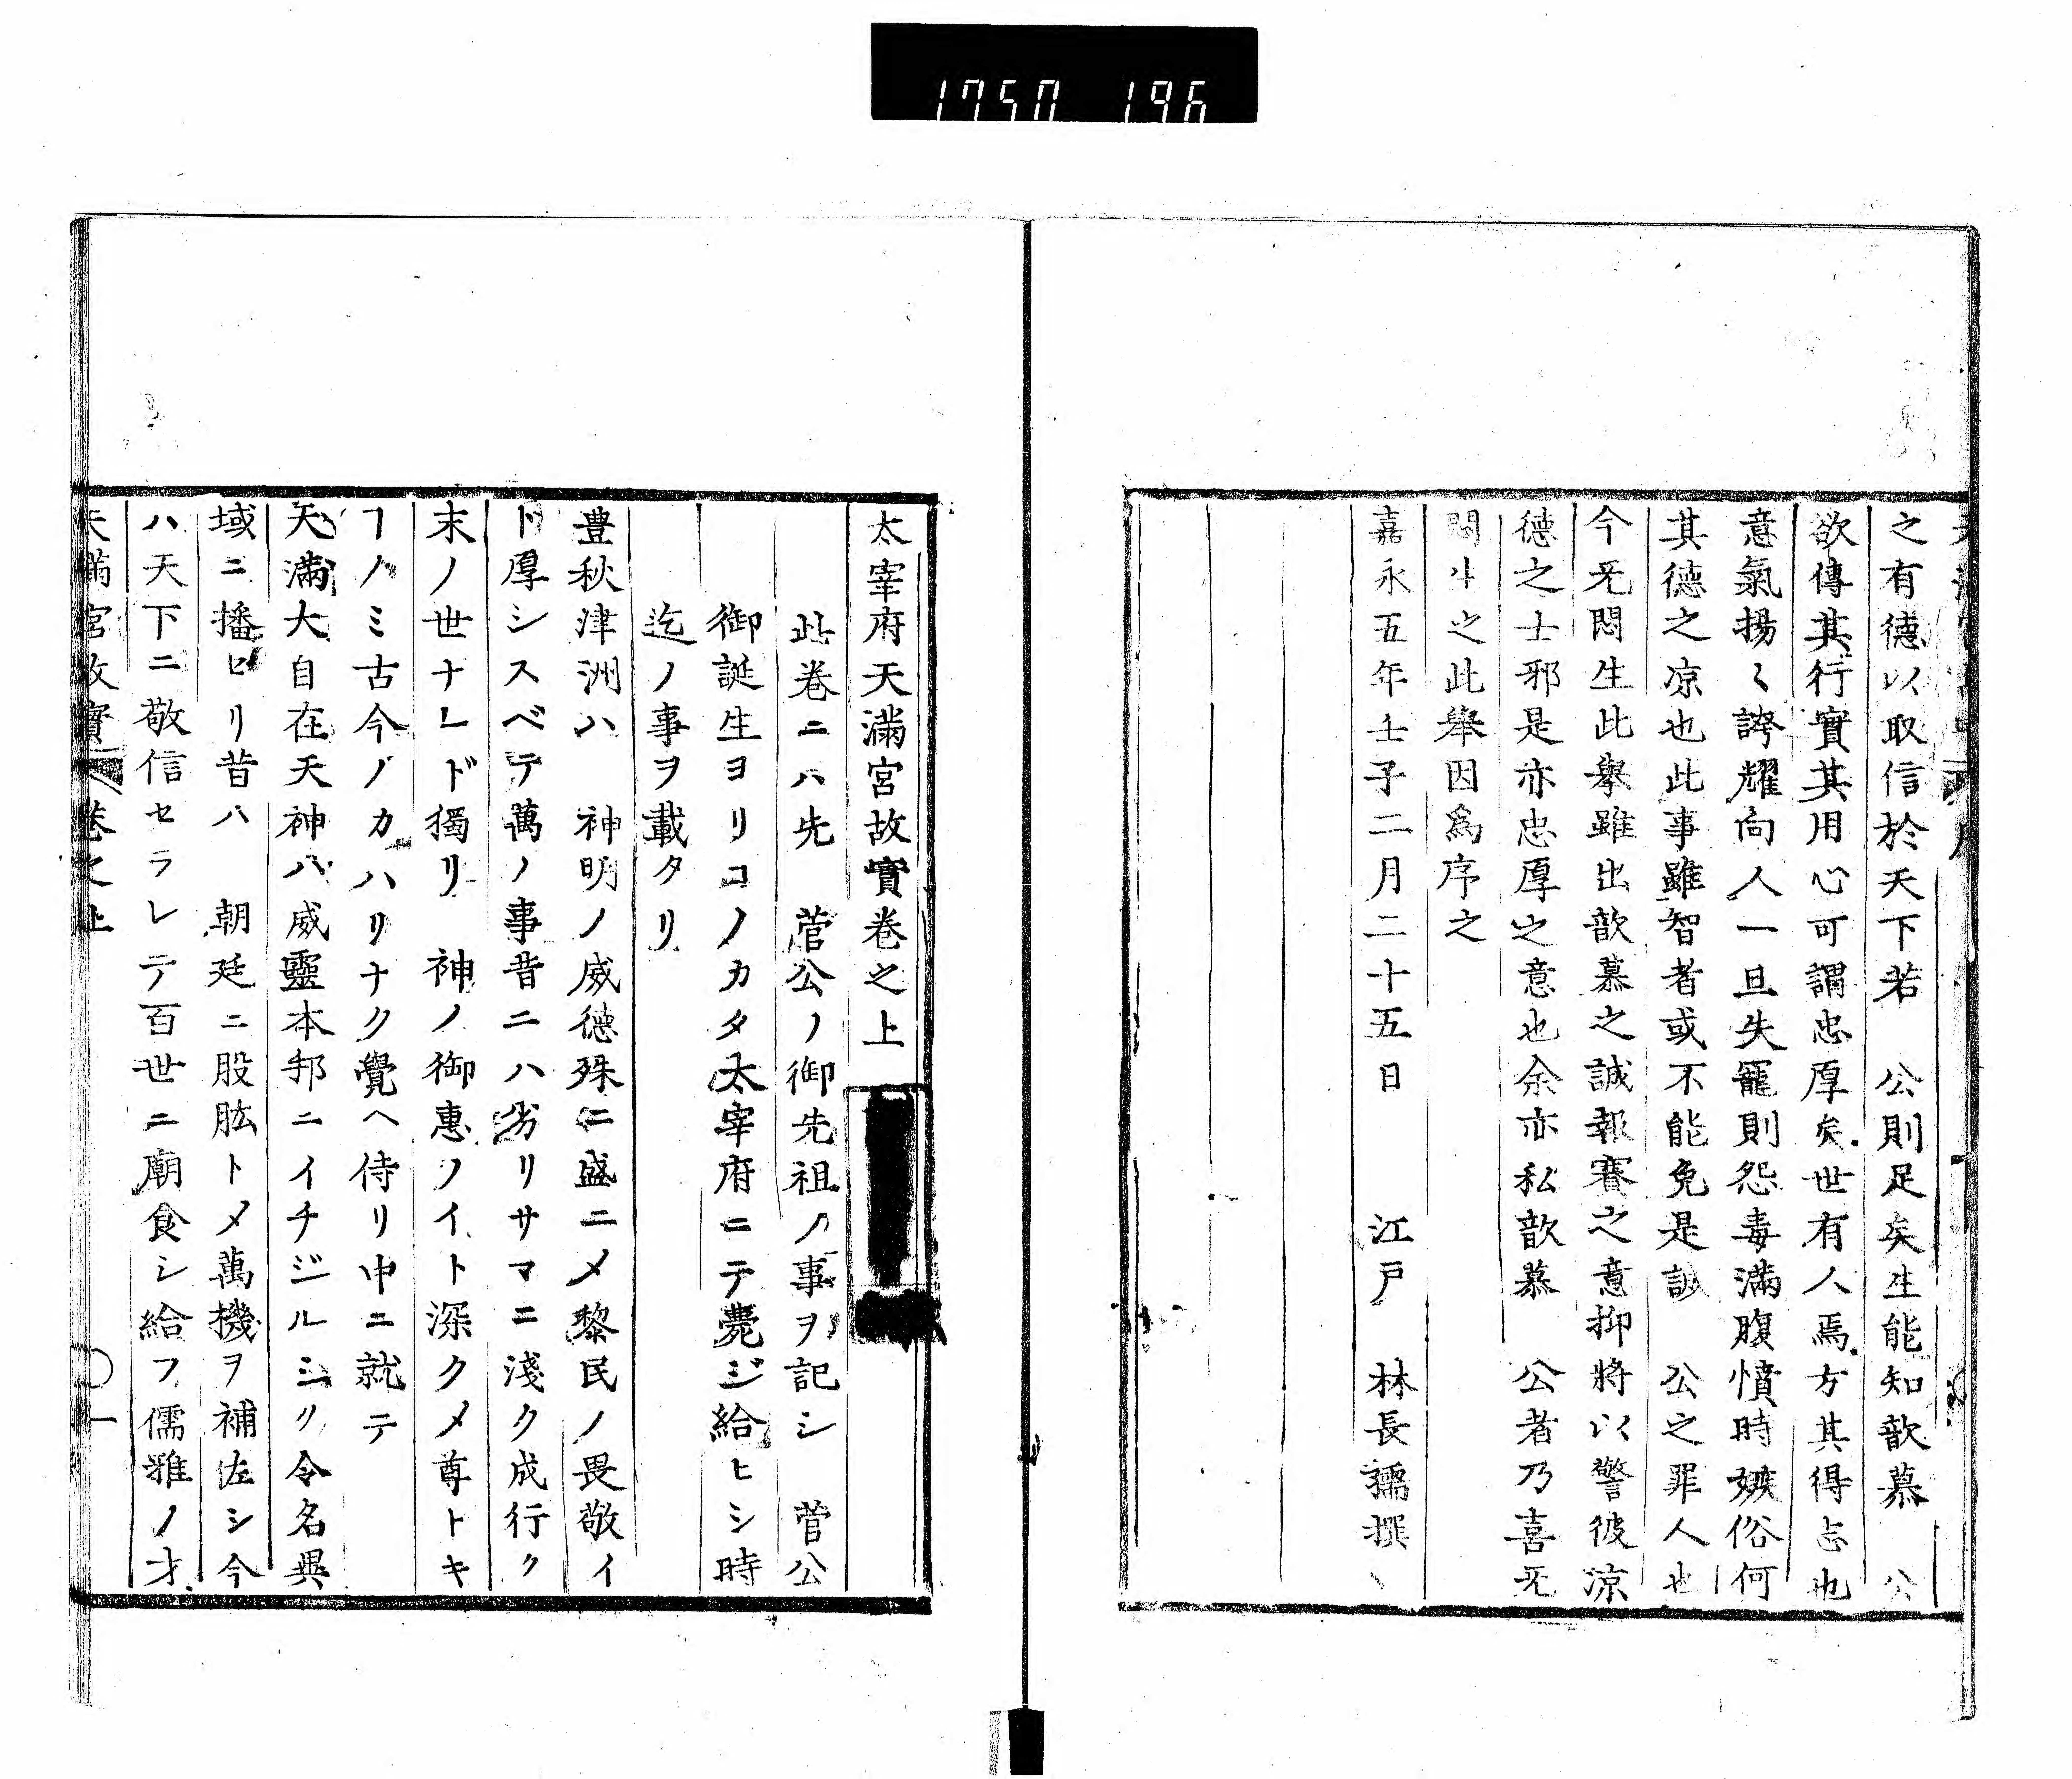 1750 196
之有德以取信於天下若　公則足矣生能知歆慕　公
欲傳其行實其用心可謂忠厚矣世有人焉方其得志也
意氣揚〻誇耀向人一旦失寵則怨毒滿腹憤時嫉俗何
其德之凉也此事雖智者或不能免是誠　公之罪人也
今旡悶生此擧雖出歆慕之誠報賽之意抑將以警彼凉
德之士邪是亦忠厚之意也余亦私歆慕　公者乃喜旡
悶生之此舉因爲序之
嘉永五年壬子二月二十五日　　江戸　林長孺撰
太宰府天滿宮故實卷之上
此卷ニハ先　菅公ノ御先祖ノ事ヲ記シ　菅公
御誕生ヨリコノカタ太宰府ニテ薨ジ給ヒシ時
迄ノ事ヲ載タリ
豊秋津洲ハ　神明ノ威德殊ニ盛ニメ黎民ノ畏敬イ
ト厚シスベテ萬ノ事昔ニハ劣リサマニ淺ク成行ク
末ノ世ナレド獨リ　神ノ御惠ノイト深クメ尊トキ
ヿノミ古今ノカハリナク覺ヘ侍リ中ニ就テ
天滿大自在天神ハ威靈本邦ニイチジルシク令名異
域ニ播ヒリ昔ハ　朝廷ニ股肱トメ萬機ヲ補佐シ今
ハ天下ニ敬信セラレテ百世ニ廟食シ給フ儒雅ノ才
天滿宮故實　卷之上　〇一